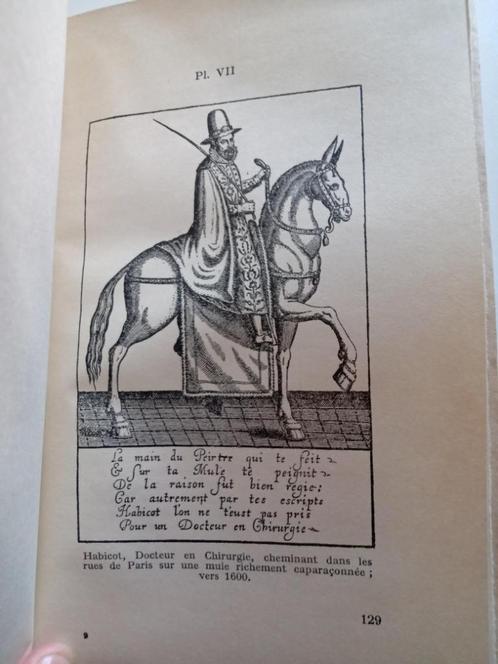 Pl. VII
La main du Peirtre qui te feit
& Sur ta Mule te peignit
De la raison fut bien regie;
Car autrement par tes escripts
Habicot l'on ne t'eust pas pris
Pour un Docteur en Chirurgie
Habicot, Docteur en Chirurgie, cheminant dans les
rues de Paris sur une mule richement caparaçonnée ;
vers 1600.
129
9